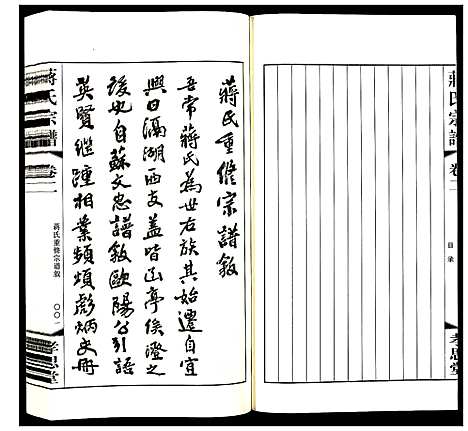 蔣氏宗譜
卷二
目录
孝思堂
蔣氏重修宗譜敘
吾常蔣氏為世右族其始遷自宜
興曰滆湖西支蓋皆函亭侯澄之
後也自蘇文忠譜敘歐陽公引語
英賢繼踵相業頻頻彪炳史冊
蔣氏宗譜
卷二
蔣氏重修宗譜敘
〇〇一
孝思堂